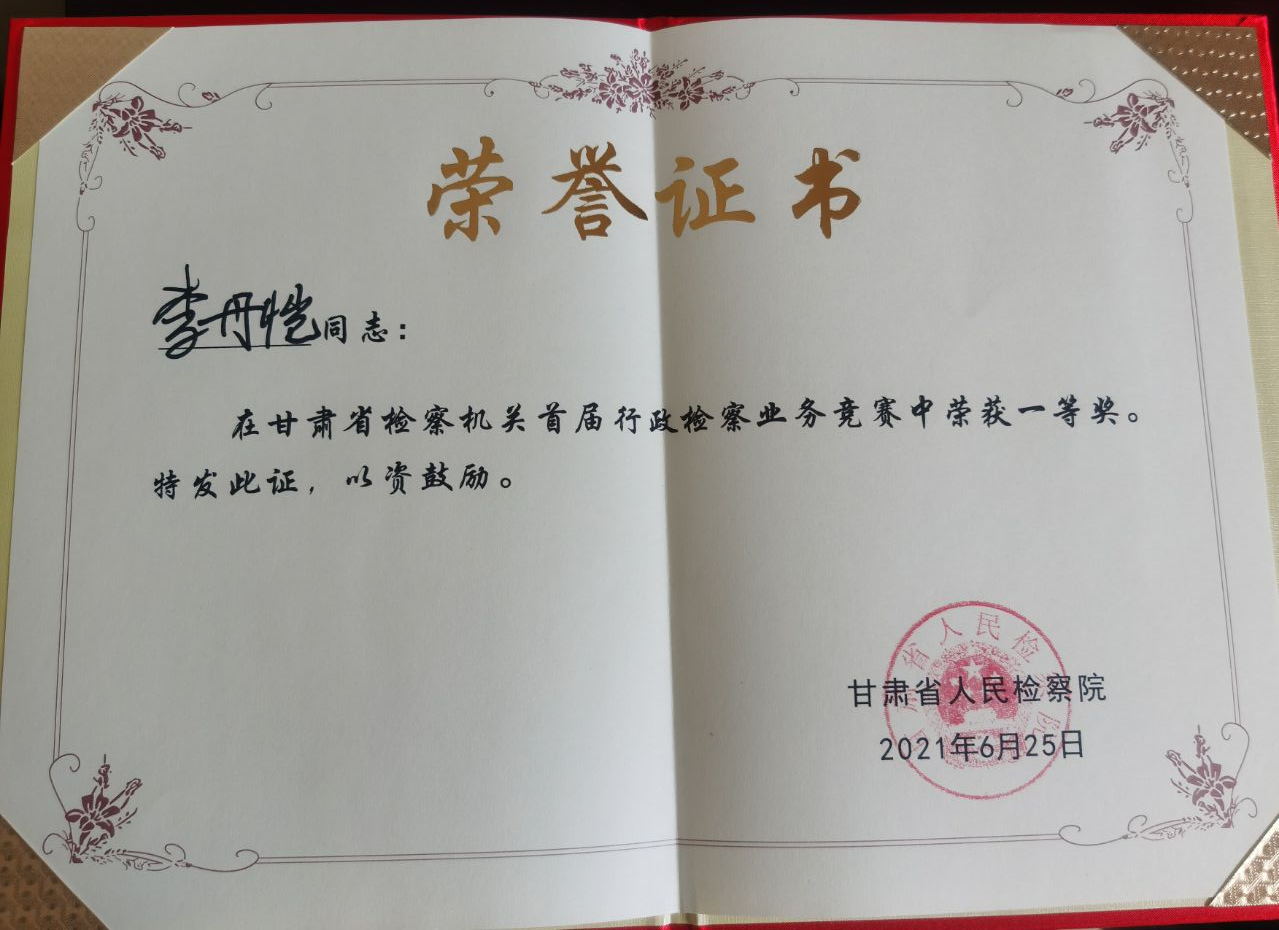 荣誉证书
李丹恺同志：
在甘肃省检察机关首届行政检察业务竞赛中荣获一等奖。
特发此证，以资鼓励。
甘肃省人民检察院
2021年6月25日